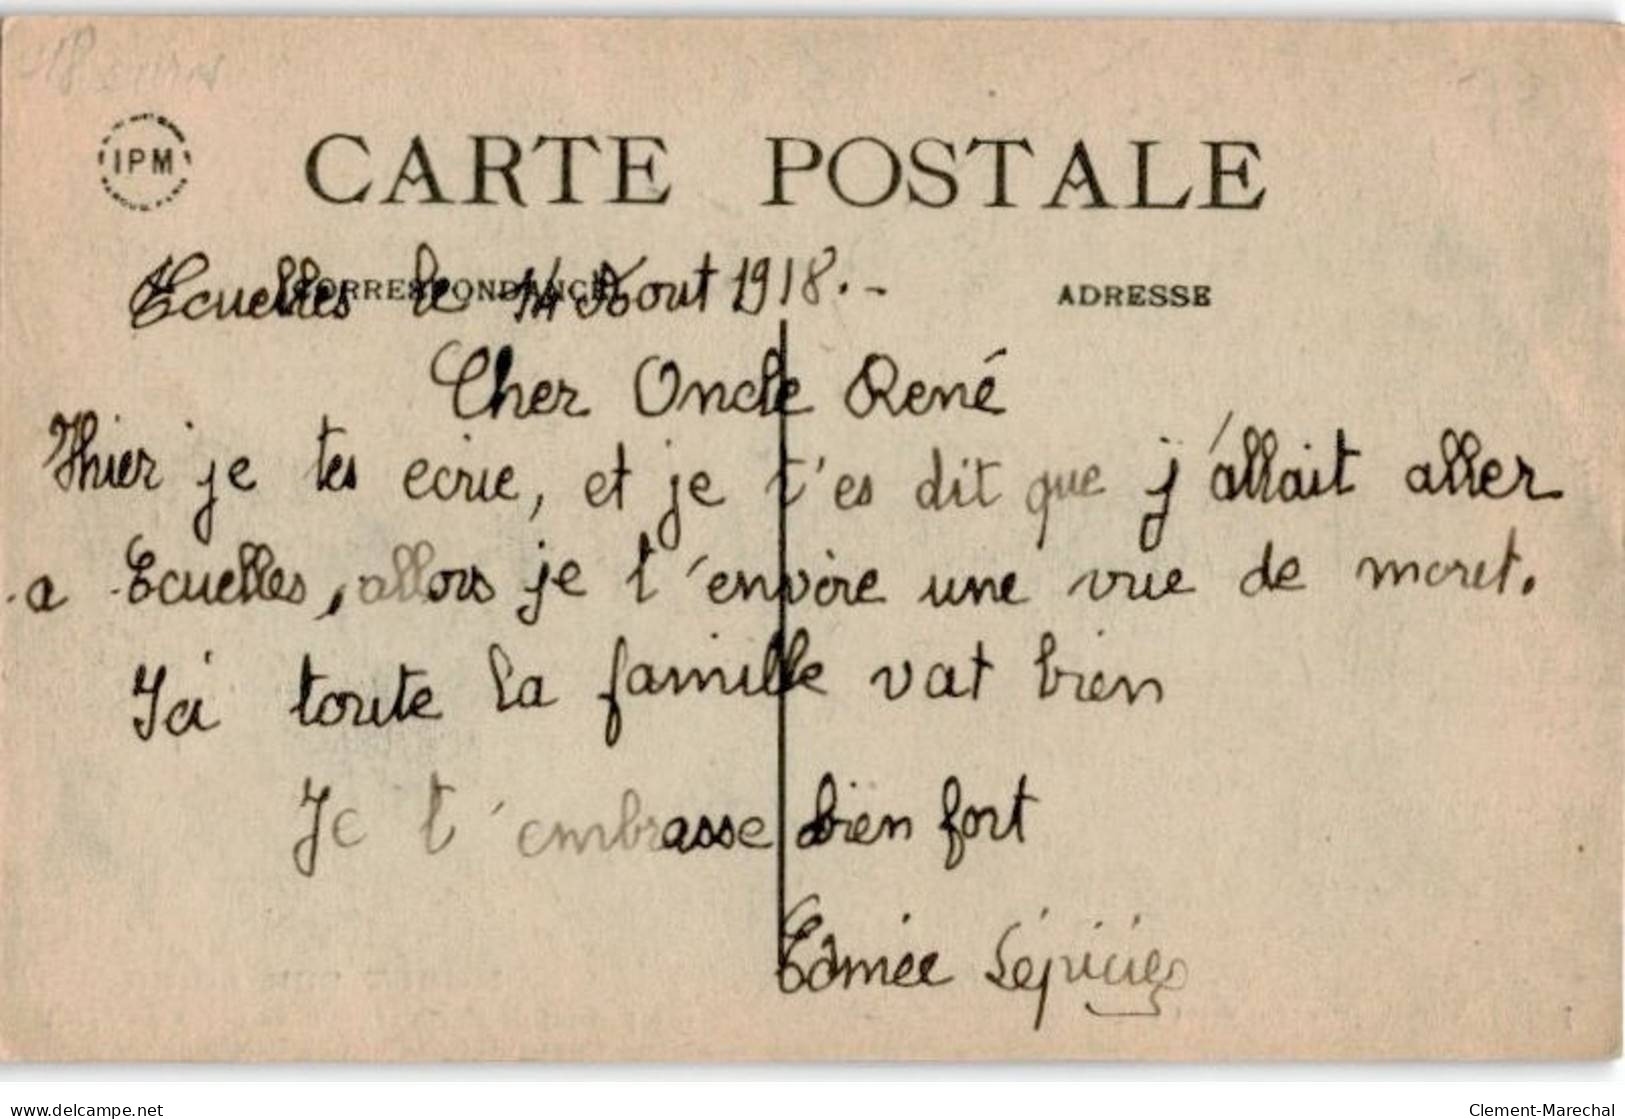 IPM
CARTE POSTALE
CORRESPONDANCE
ADRESSE
Ecuelles le 14 Aout 1918.-
Cher Oncle René
Hhier je tes ecrie, et je t'es dit que j'allait aller
a Ecuelles, allors je t'envoie une vue de moret.
Ici toute la famille vat bien
Je t'embrasse bien fort
Edmée Lépicier
delcampe.net
Clement-Marechal